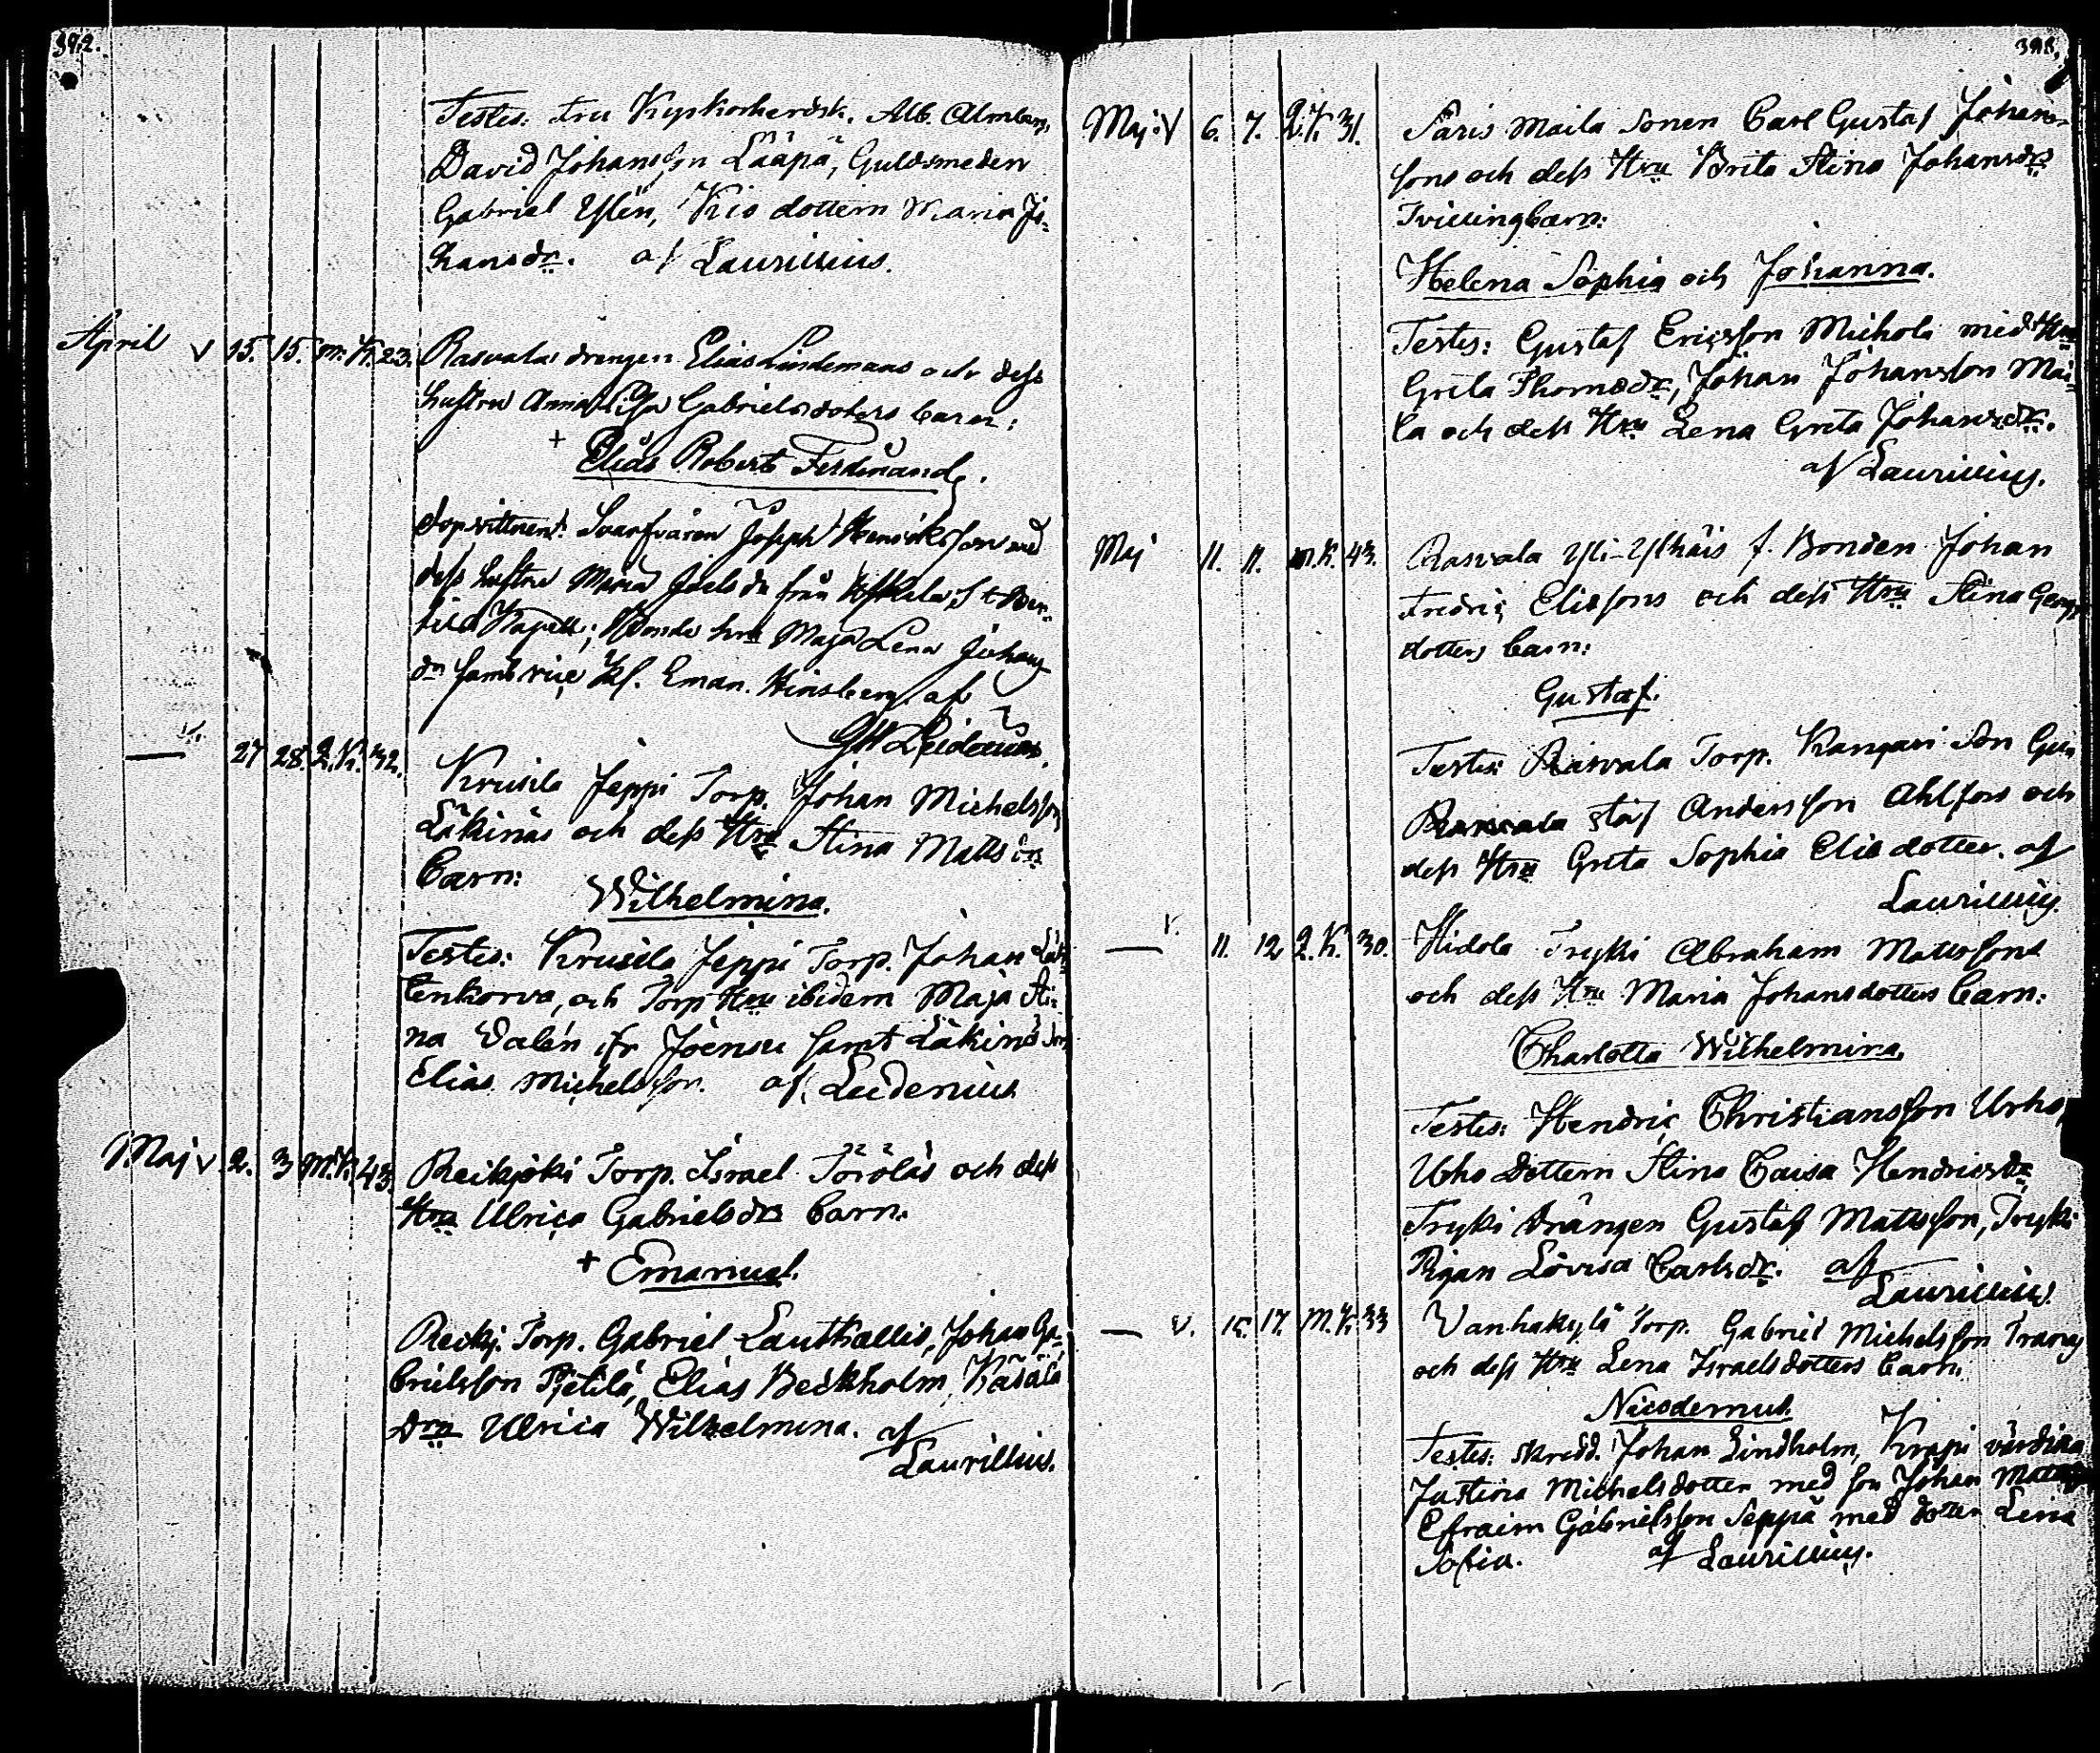 392.
Testes: Fru Kyrkoherdsk. Alb. Almberg,
David Johansson Lääpä, Guldsmeden
Gabriel Ylén, Kio dottern Maria Jo-
hansdr. af Laurillius.
April v 15. 15. m. K. 23. Rasvalas drengen Elias Lindemans och dess
hustru Anna Lisa Gabrielsdoters barn:
+ Elias Robert Ferdinand.
dopvittnen: Svarfvaren Joseph Henriksson med
dess hustru Maria Joelsdr från
Kapell; Bonde hru Maja Lena Johans
dr samt vice Kl. Eman. Hinsberg af
GH Leidenius.
— v. 27 28. 2. K. 32. Krusila Jeppi Torp. Johan Michelsson
Läkinäs och dess Hru Stina Mattsdrs
Barn:
Wilhelmina.
Testes: Krusila Jeppi Torp. Johan
tenkorva, och Torp Hru ibidem Maja Sti-
na Dalén fr Joensu samt Läkinäs Son
Elias Michelsson. af Leidenius
Maj v. 2. 3 M. K. 43. Reikjoki Torp. Israel Töröläs och dess
Hru Ulrica Gabrielsdrs Barn:
+ Emanuel.
Reikj. Torp. Gabriel Lautkallis, Johan Ga-
brielsson Pjetilä, Elias Beckholm, Käsälä
drn Ulrica Wilhelmina. af
Laurillius.
393.
Maj: V 6. 7. 2. K. 31. Säris Maila Sonen Carl Gustaf Johans-
sons och dess Hru Brita Stina Johansdrs
Tvillingbarn:
Helena Sophia och Johanna.
Testes: Gustaf Ericsson Michola med Hru
Greta Thomsdr, Johan Johansson Mai-
la och dess Hru Lena Greta Johansdr.
af Laurillius.
Maj 11. 11. m. K. 43. Rasvala Yli-Ylhäis f. Bonden Johan
Fredric Eliassons och dess Hru Stina Georgs
dotters barn:
Gustaf.
Testes: Rasvala Torp. Kangari Son Gu-
staf Andersson Ahlfors och
dess Hru Greta Sophia Elisdotter. af
Laurillius.
— v. 11. 12 2. K. 30. Hidola Tryki Abraham Mattssons
och dess Hru Maria Johansdotters barn:
Charlotta Wilhelmina.
Testes: Hendric Christiansson Urho,
Urho Dottern Stina Caisa Hendricsdr,
Tryki Drängen Gustaf Mattsson, Tryki
Pigan Lovisa Carlsdr. af
Laurillius.
— v. 15. 17. M. K. 33 Vanhakylä Torp. Gabriel Michelsson
och dess Hru Lena Israelsdotters barn.
Nicodemus.
Testes: Skredd. Johan Lindholm, Krapi värdina
Justina Michelsdotter med son Johan
Efraim Gabrielsson Seppä med dotter Lena
Sofia. af Laurillius.